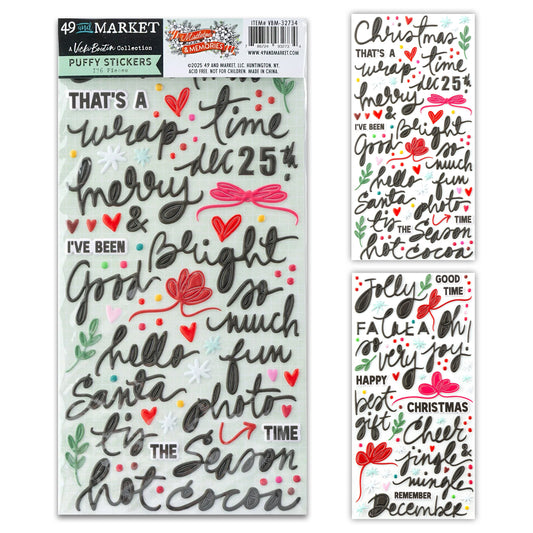 49 AND MARKET
A Vicki Boutin Collection
PUFFY STICKERS
176 Pieces
Mistletoe
& MEMORIES
ITEM# VBM-32734
©2025 49 AND MARKET, LLC. HUNTINGTON, NY.
ACID FREE. NOT FOR CHILDREN. MADE IN CHINA.
WWW.49ANDMARKET.COM
THAT'S A
wrap time
dec 25th
merry
&
I'VE BEEN
Bright
Good so
much
hello fun
Santa
photo
tis THE TIME
Season
hot cocoa
Christmas
THAT'S A
wrap time
dec 25th
merry
&
I'VE BEEN
Bright
Good so
much
hello fun
Santa
photo
tis THE TIME
Season
hot cocoa
Jolly GOOD
TIME
FA LA LA oh!
so
very joy
HAPPY
best
gift CHRISTMAS
Cheer
jingle
&
mingle
REMEMBER
December